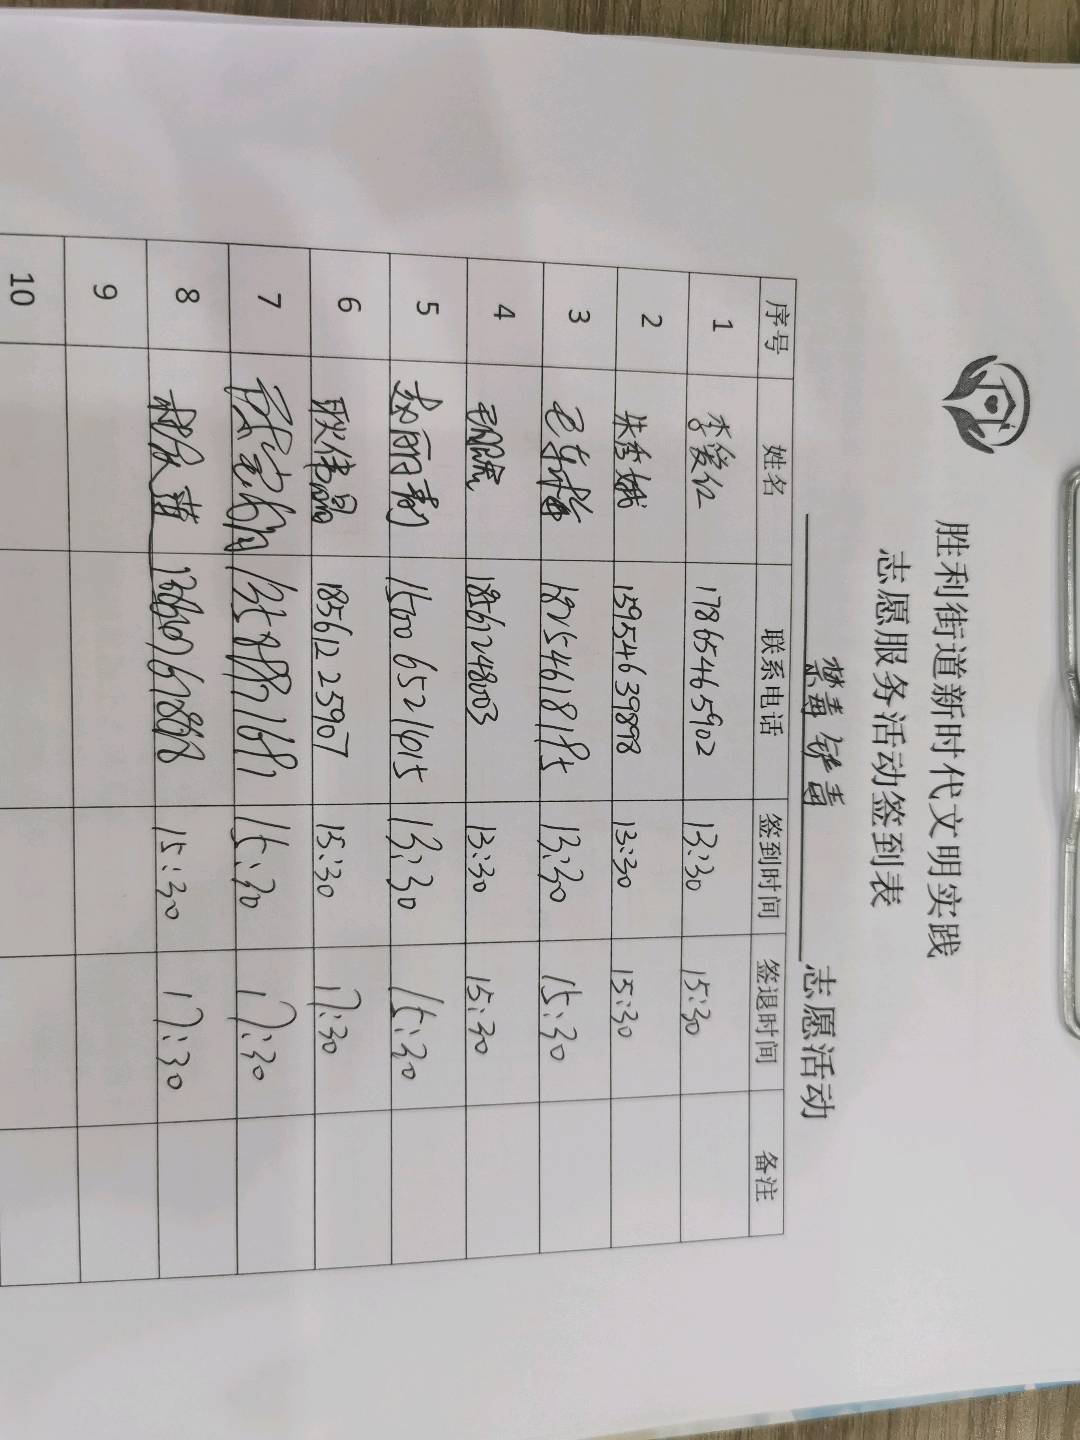 胜利街道新时代文明实践
志愿服务活动签到表
禁毒铲毒 志愿活动
序号 姓名 联系电话 签到时间 签退时间 备注
1 李爱红 17865465902 13:30 15:30
2 朱秀娥 15954639898 13:30 15:30
3 18254618195 13:30 15:30
4 18561248003 13:30 15:30
5 15006521615 13:30 15:30
6 耿伟晶 18561225907 15:30 17:30
7 13588871681 15:30 17:30
8 15:30 17:30
9
10